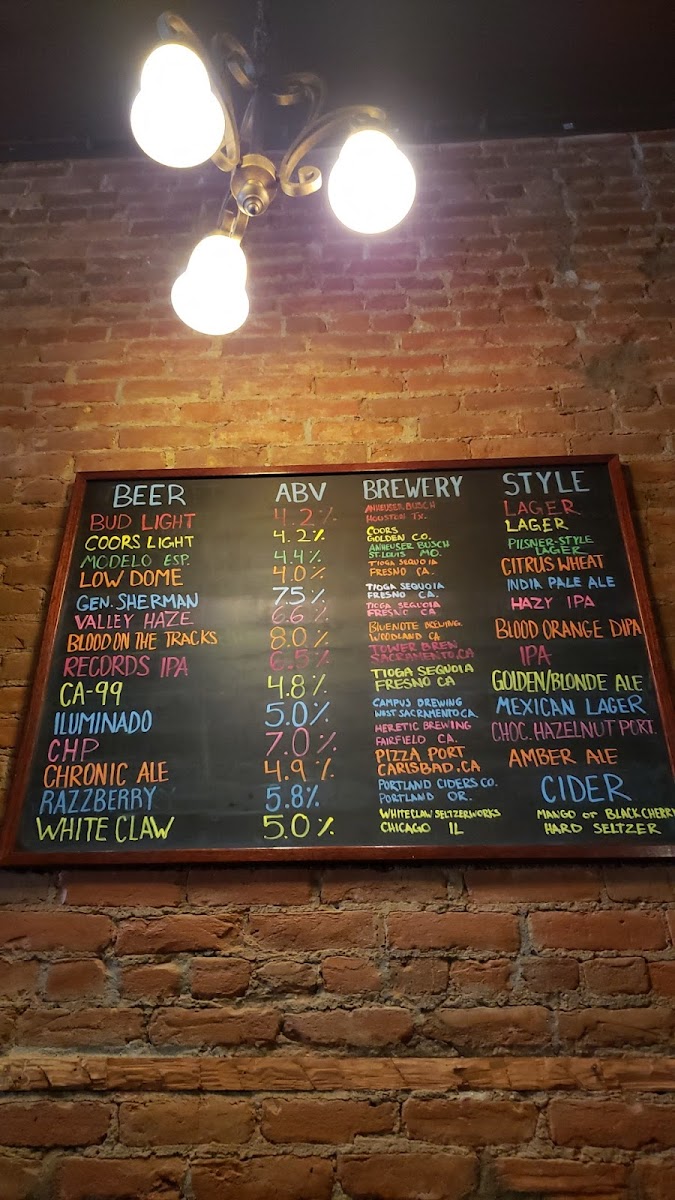 BEER ABV BREWERY STYLE
BUD LIGHT 4.2% ANHEUSER BUSCH HOUSTON TX. LAGER
COORS LIGHT 4.2% COORS GOLDEN CO. LAGER
MODELO ESP. 4.4% ANHEUSER BUSCH ST. LOUIS MO. PILSNER-STYLE LAGER
LOW DOME 4.0% TIOGA SEQUOIA FRESNO CA. CITRUS WHEAT
GEN. SHERMAN 7.5% TIOGA SEQUOIA FRESNO CA. INDIA PALE ALE
VALLEY HAZE 6.6% TIOGA SEQUOIA FRESNO CA. HAZY IPA
BLOOD ON THE TRACKS 8.0% BLUENOTE BREWING WOODLAND CA BLOOD ORANGE DIPA
RECORDS IPA 6.5% TOWER BREW SACRAMENTO.CA IPA
CA-99 4.8% TIOGA SEQUOIA FRESNO CA GOLDEN/BLONDE ALE
ILUMINADO 5.0% CAMPUS BREWING WEST SACRAMENTO CA. MEXICAN LAGER
CHP 7.0% HERETIC BREWING FAIRFIELD CA. CHOC. HAZELNUT PORT.
CHRONIC ALE 4.9% PIZZA PORT CARLSBAD.CA AMBER ALE
RAZZBERRY 5.8% PORTLAND CIDERS CO. PORTLAND OR. CIDER
WHITE CLAW 5.0% WHITECLAW SELTZERWORKS CHICAGO IL MANGO or BLACK CHERRY HARD SELTZER